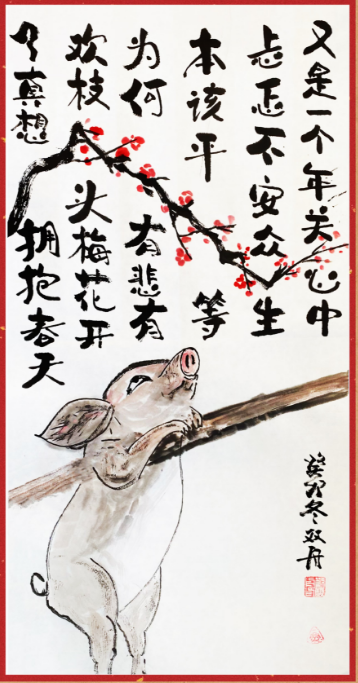 又是一个年关心中
忐忑不安众生
本该平等
为何有悲有
欢枝头梅花开
真想拥抱春天
癸卯冬双